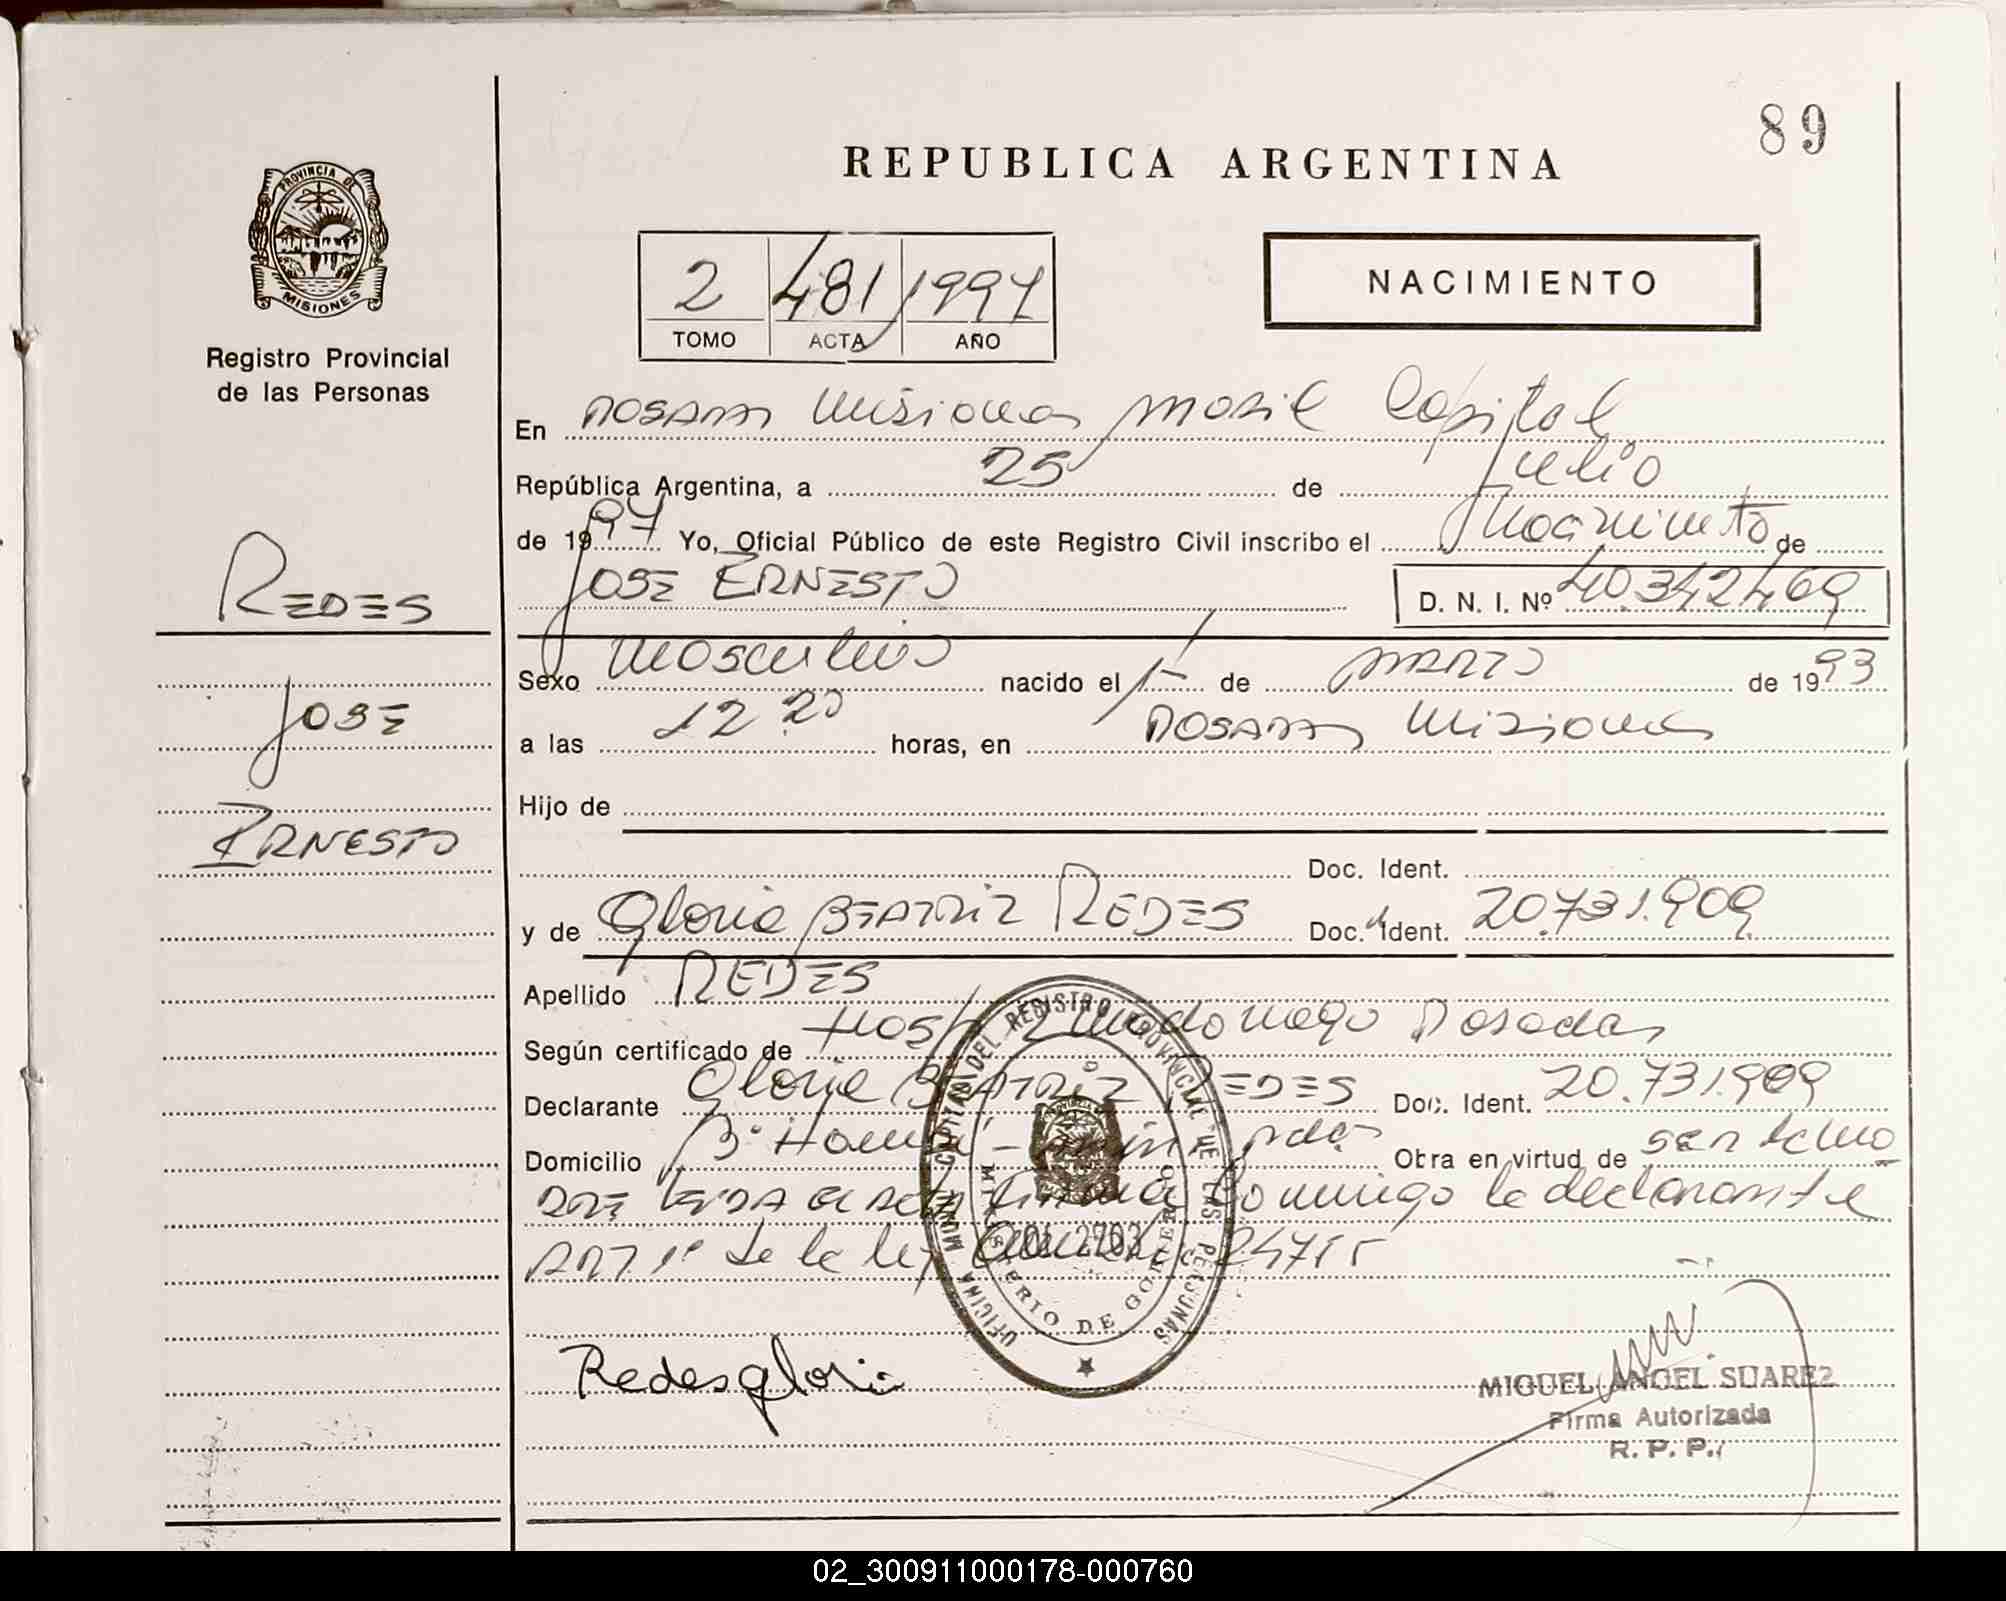 89
REPUBLICA ARGENTINA
PROVINCIA DE MISIONES
Registro Provincial
de las Personas
2 481 1997
TOMO ACTA AÑO
NACIMIENTO
En Posadas Misiones Movil Capital
República Argentina, a 25 de Julio
de 1997 Yo, Oficial Público de este Registro Civil inscribo el Nacimiento de
JOSE ERNESTO D. N. I. Nº 40.342469
REDES
JOSE
ERNESTO
Sexo Masculino nacido el 1º de MARZO de 1993
a las 12 20 horas, en POSADAS Misiones
Hijo de
Doc. Ident.
y de Gloria BEATRIZ REDES Doc. Ident. 20.731.909
Apellido REDES
Según certificado de Hosp R Madariaga Posadas
Declarante Gloria BEATRIZ REDES Doc. Ident. 20.731.909
Domicilio Bº Pdas Obra en virtud de ser
LEIDA el ACTA la declarante
ART 1º de la ley
OFICINA MOVIL CAPITAL DEL REGISTRO PROVINCIAL DE LAS PERSONAS
MINISTERIO DE GOBIERNO
Redes gloria
MIGUEL ANGEL SUAREZ
Firma Autorizada
R. P. P.
02_300911000178-000760